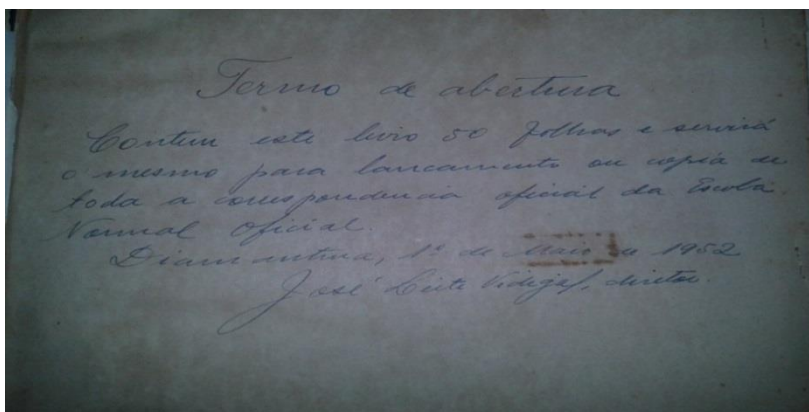 Termo de abertura
Contem este livro 50 folhas e servirá
o mesmo para lancamento ou copia de
toda a correspondencia oficial da Escola
Normal Oficial.
Diamantina, 1º de Maio de 1952
José Leite Vidigal, diretor.